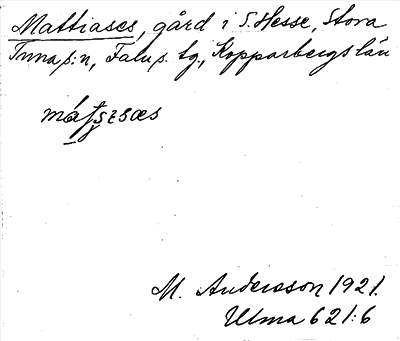 Mattiases, gård i S. Hesse, Stora
Tuna s:n, Falu s. tg., Kopparbergs län
M. Andersson 1921.
Ulma 621:6